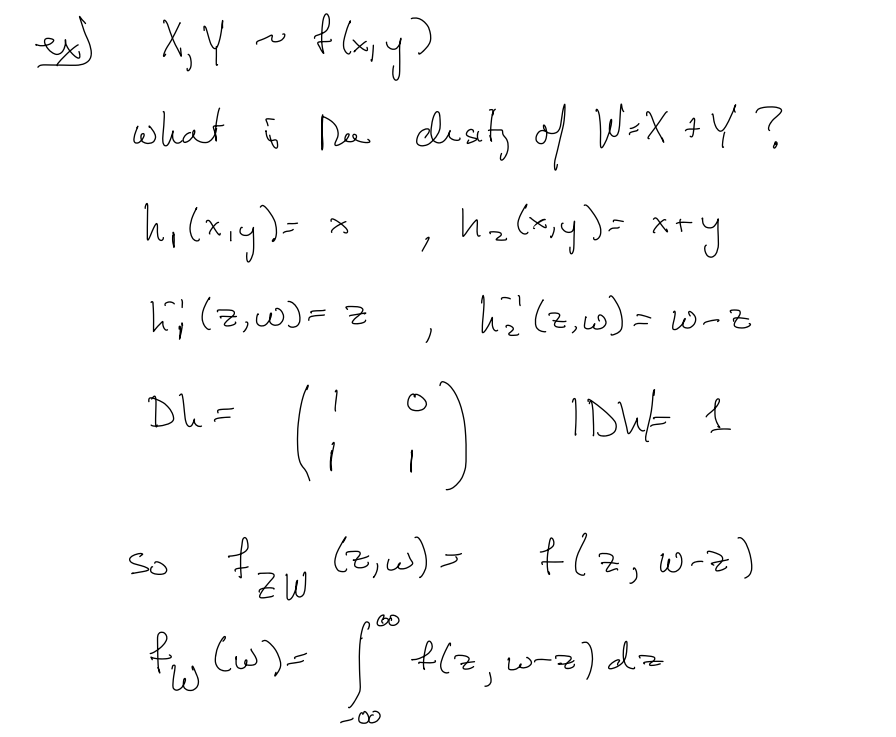 ex) X, Y ~ f(x, y)
what is the density of W = X + Y ?
h₁(x, y) = x , h₂(x, y) = x + y
h₁⁻¹(z, w) = z , h₂⁻¹(z, w) = w - z
Dh = ( 1 0
1 1 ) |Dh| = 1
so f_{ZW}(z, w) = f(z, w - z)
f_W(w) = ∫_{-∞}^{∞} f(z, w - z) dz